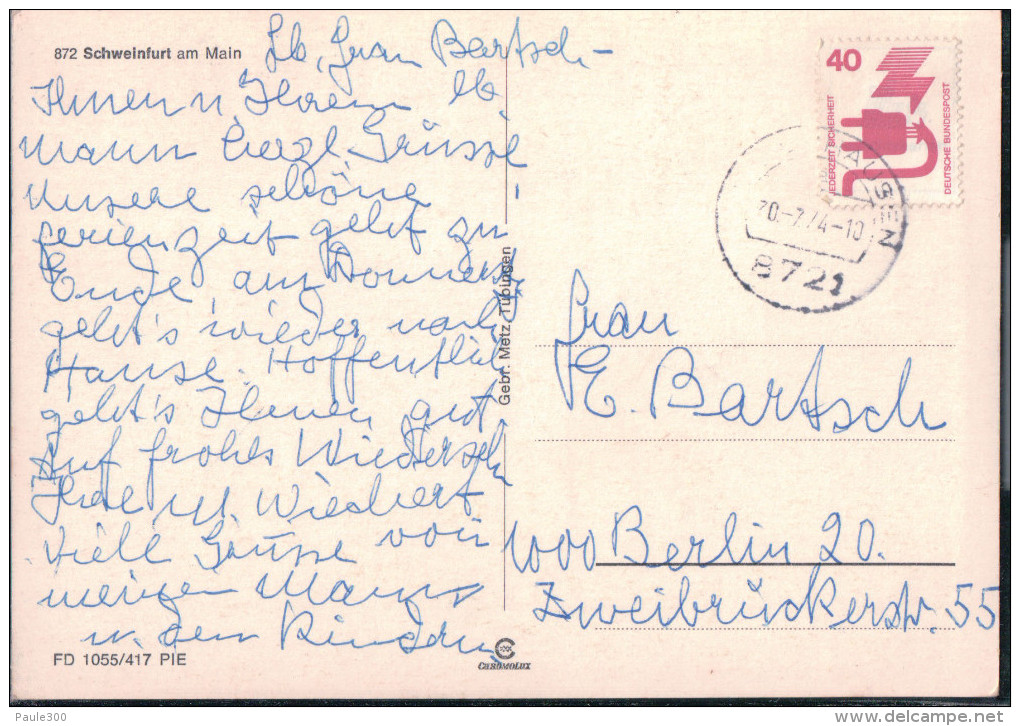 872 Schweinfurt am Main
Lb. Frau Bartsch -
Ihnen u. Ihrem lb.
Mann herzl. Grüsse
Unsere schöne
Ferienzeit geht zu
Ende, am Donnerst.
geht's wieder nach
Hause. Hoffentlich
geht's Ihnen gut.
Auf frohes Wiedersehn
Ihre M. Wiechert
Viele Grüsse von
meinem Mann
u. den Kindern
FD 1055/417 PIE
Gebr. Metz Tübingen
CHROMOLUX
40
JEDERZEIT SICHERHEIT
DEUTSCHE BUNDESPOST
HAUSEN
30.-7.74-10
8721
Frau
E. Bartsch
1000 Berlin 20.
Zweibrückerstr. 55
Paule300